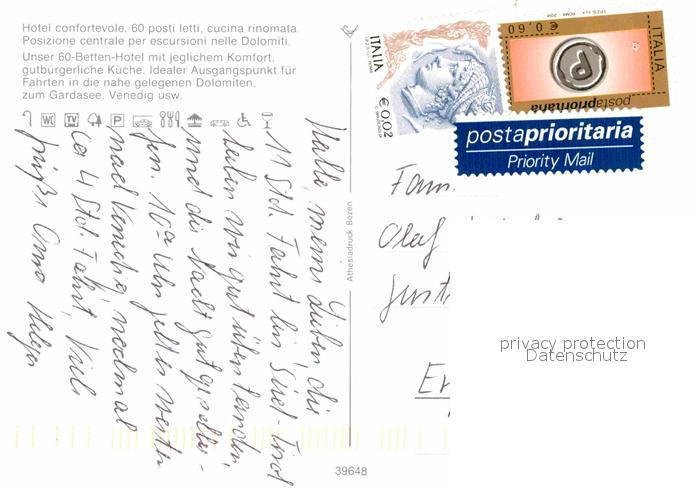 Hotel confortevole, 60 posti letti, cucina rinomata.
Posizione centrale per escursioni nelle Dolomiti.
Unser 60-Betten-Hotel mit jeglichem Komfort,
gutbürgerliche Küche. Idealer Ausgangspunkt für
Fahrten in die nahe gelegenen Dolomiten,
zum Gardasee, Venedig usw.
Hallo, meine Lieben die
11 Std. Fahrt bis Süd-Tirol
haben wir gut überstanden
und die Nacht gut geschla-
fen. 10ª Uhr geht es weiter
nach Venedig, nochmal
ca 4 Std. Fahrt, Viele
Grüße Oma Helga
Athesiadruck Bozen
39648
ITALIA
€ 0,02
€ 0,60
ITALIA
postaprioritaria
postaprioritaria
Priority Mail
Fam.
Olaf
privacy protection
Datenschutz